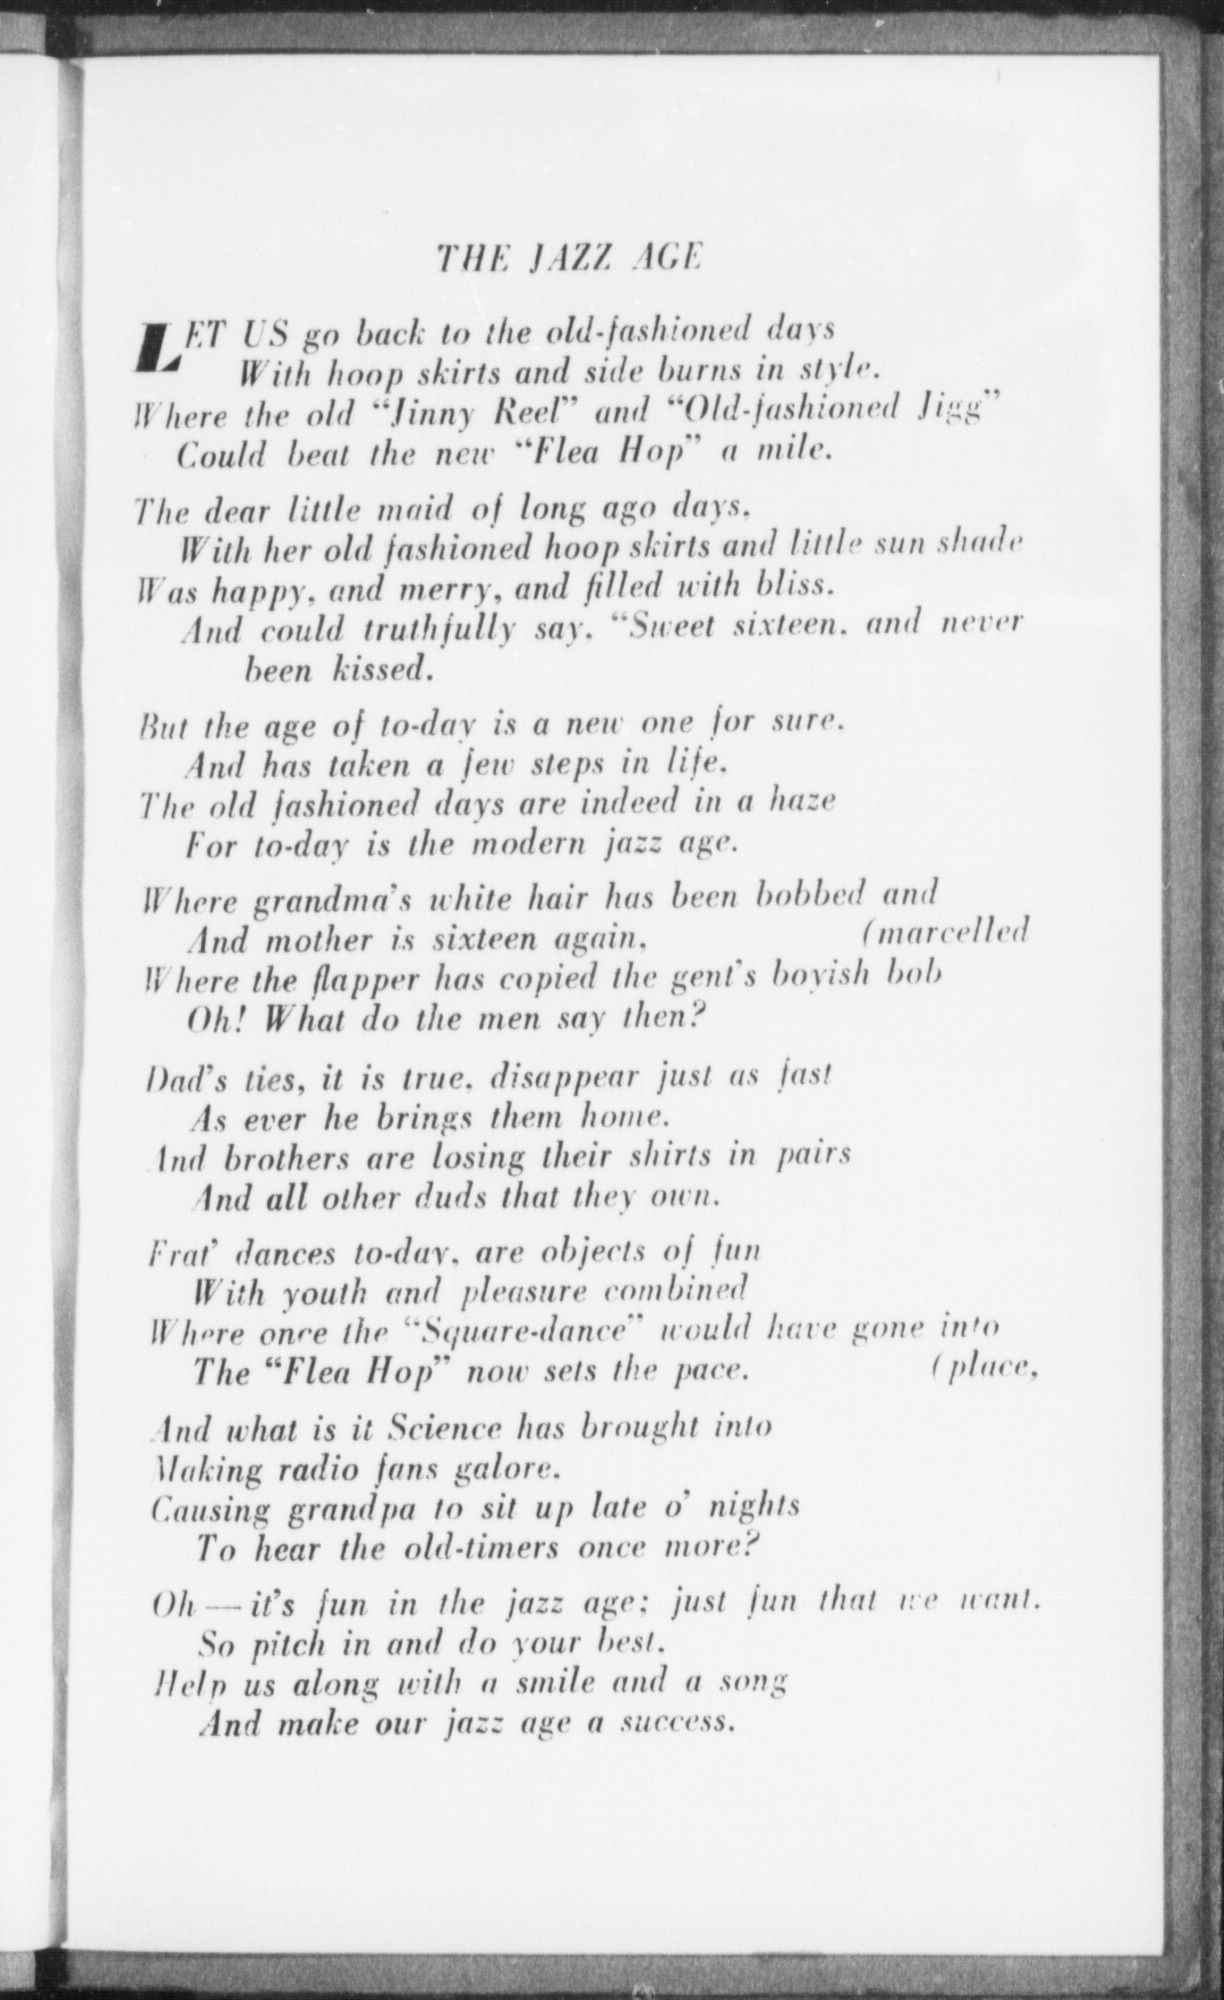 THE JAZZ AGE
LET US go back to the old-fashioned days
With hoop skirts and side burns in style.
Where the old “Jinny Reel” and “Old-fashioned Jigg”
Could beat the new “Flea Hop” a mile.
The dear little maid of long ago days,
With her old fashioned hoop skirts and little sun shade
Was happy, and merry, and filled with bliss.
And could truthfully say, “Sweet sixteen, and never
been kissed.
But the age of to-day is a new one for sure.
And has taken a few steps in life,
The old fashioned days are indeed in a haze
For to-day is the modern jazz age.
Where grandma’s white hair has been bobbed and
And mother is sixteen again, (marcelled
Where the flapper has copied the gent’s boyish bob
Oh! What do the men say then?
Dad’s ties, it is true, disappear just as fast
As ever he brings them home.
And brothers are losing their shirts in pairs
And all other duds that they own.
Frat’ dances to-day, are objects of fun
With youth and pleasure combined
Where once the “Square-dance” would have gone into
The “Flea Hop” now sets the pace. (place,
And what is it Science has brought into
Making radio fans galore.
Causing grandpa to sit up late o’ nights
To hear the old-timers once more?
Oh — it’s fun in the jazz age; just fun that we want.
So pitch in and do your best.
Help us along with a smile and a song
And make our jazz age a success.